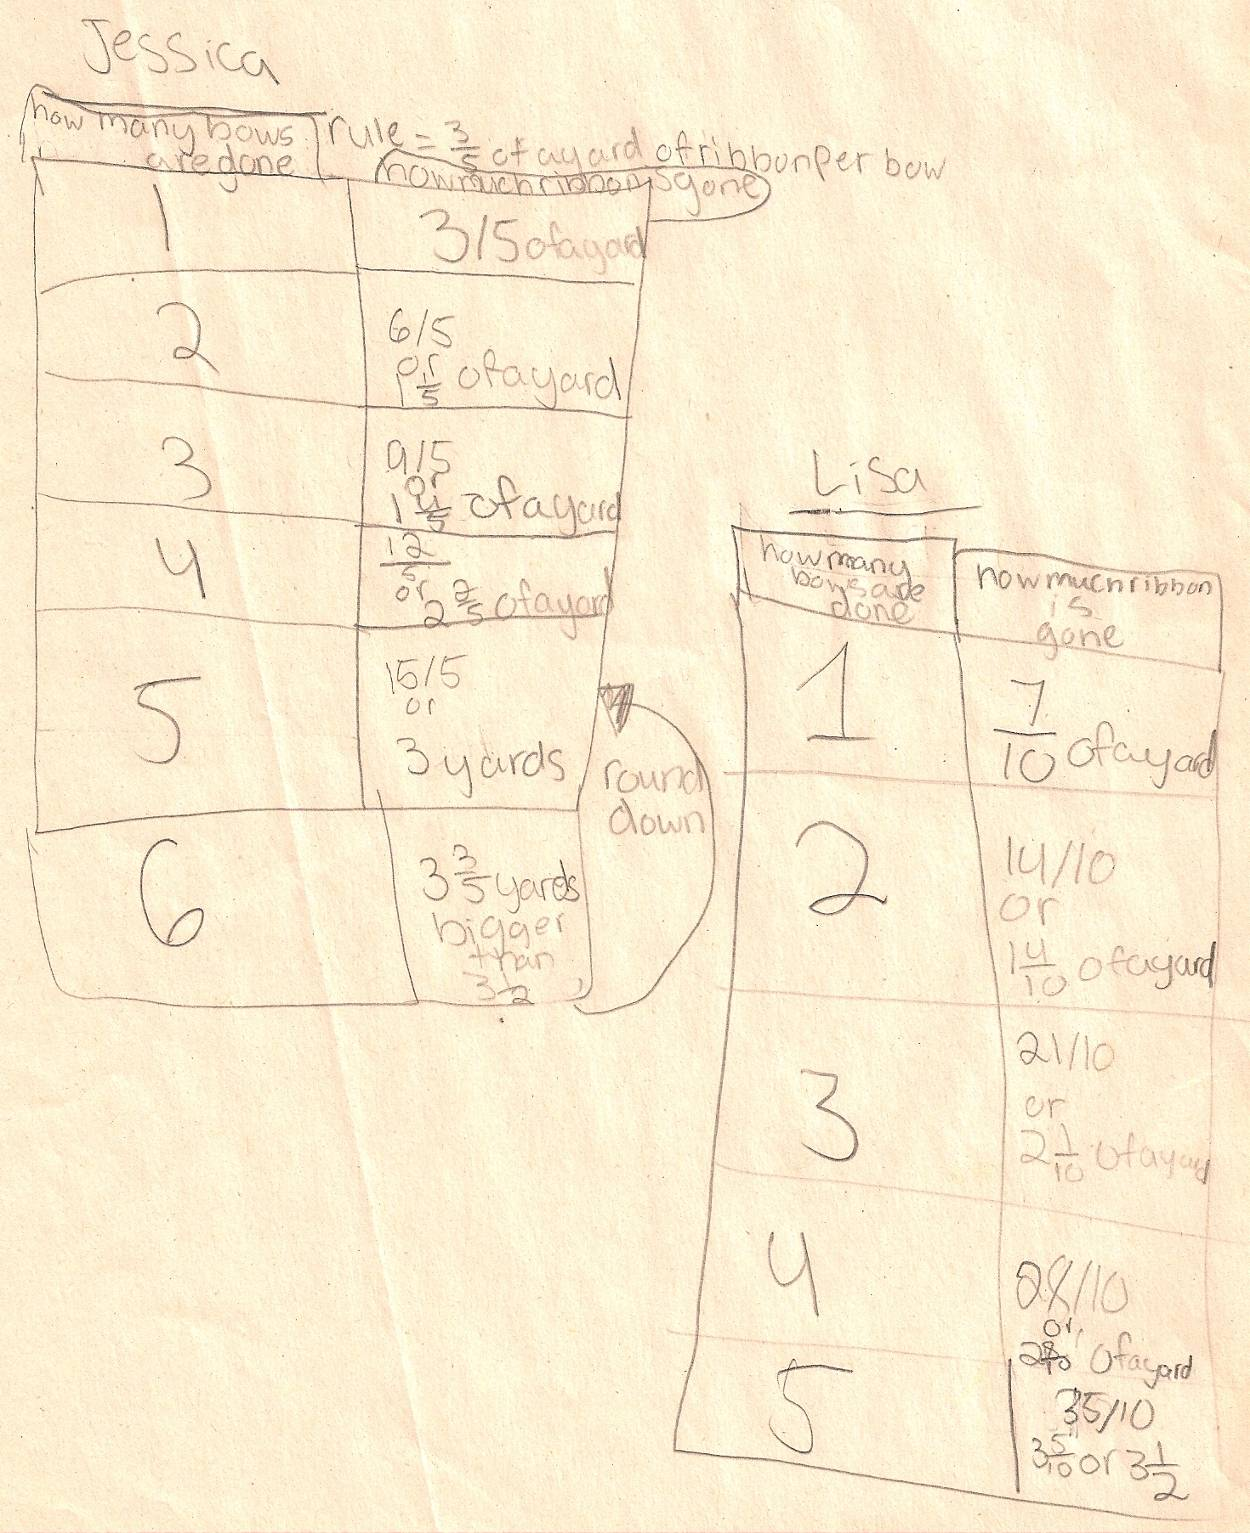 Jessica
how many bows
are done
rule = 3/5 of a yard of ribbon per bow
how much ribbon is gone
1
3/5 of a yard
2
6/5
or
1 1/5 of a yard
3
9/5
or
1 4/5 of a yard
4
12/5
or 2 2/5 of a yard
5
15/5
or
3 yards
round
down
6
3 3/5 yards
bigger
than
3 1/2
Lisa
how many
bows are
done
how much ribbon
is
gone
1
7/10 of a yard
2
14/10
or
1 4/10 of a yard
3
21/10
or
2 1/10 of a yard
4
28/10
or
2 8/10 of a yard
5
35/10
3 5/10 or 3 1/2